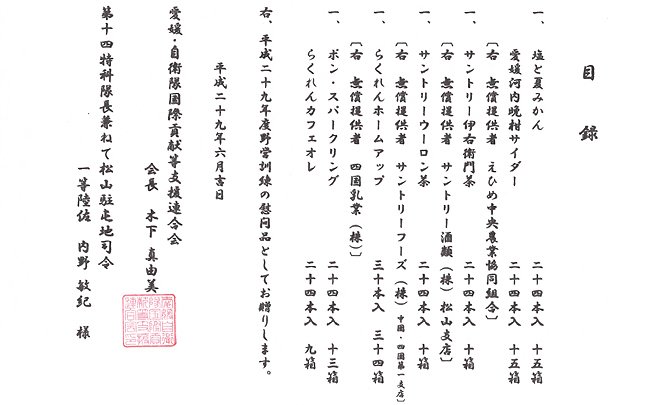 目録
一、塩と夏みかん 二十四本入 十五箱
愛媛河内晩柑サイダー 二十四本入 十五箱
〔右 無償提供者 えひめ中央農業協同組合〕
一、サントリー伊右衛門茶 二十四本入 十箱
〔右 無償提供者 サントリー酒類（株）松山支店〕
一、サントリーウーロン茶 二十四本入 十箱
〔右 無償提供者 サントリーフーズ（株）中国・四国第一支店〕
一、らくれんホームアップ 三十本入 三十四箱
〔右 無償提供者 四国乳業（株）〕
一、ボン・スパークリング 二十四本入 十三箱
らくれんカフェオレ 二十四本入 九箱
右、平成二十九年度野営訓練の慰問品としてお贈りします。
平成二十九年六月吉日
愛媛・自衛隊国際貢献等支援連合会
会長 木下 真由美
第十四特科隊長兼ねて松山駐屯地司令
一等陸佐 内野 敏紀 様